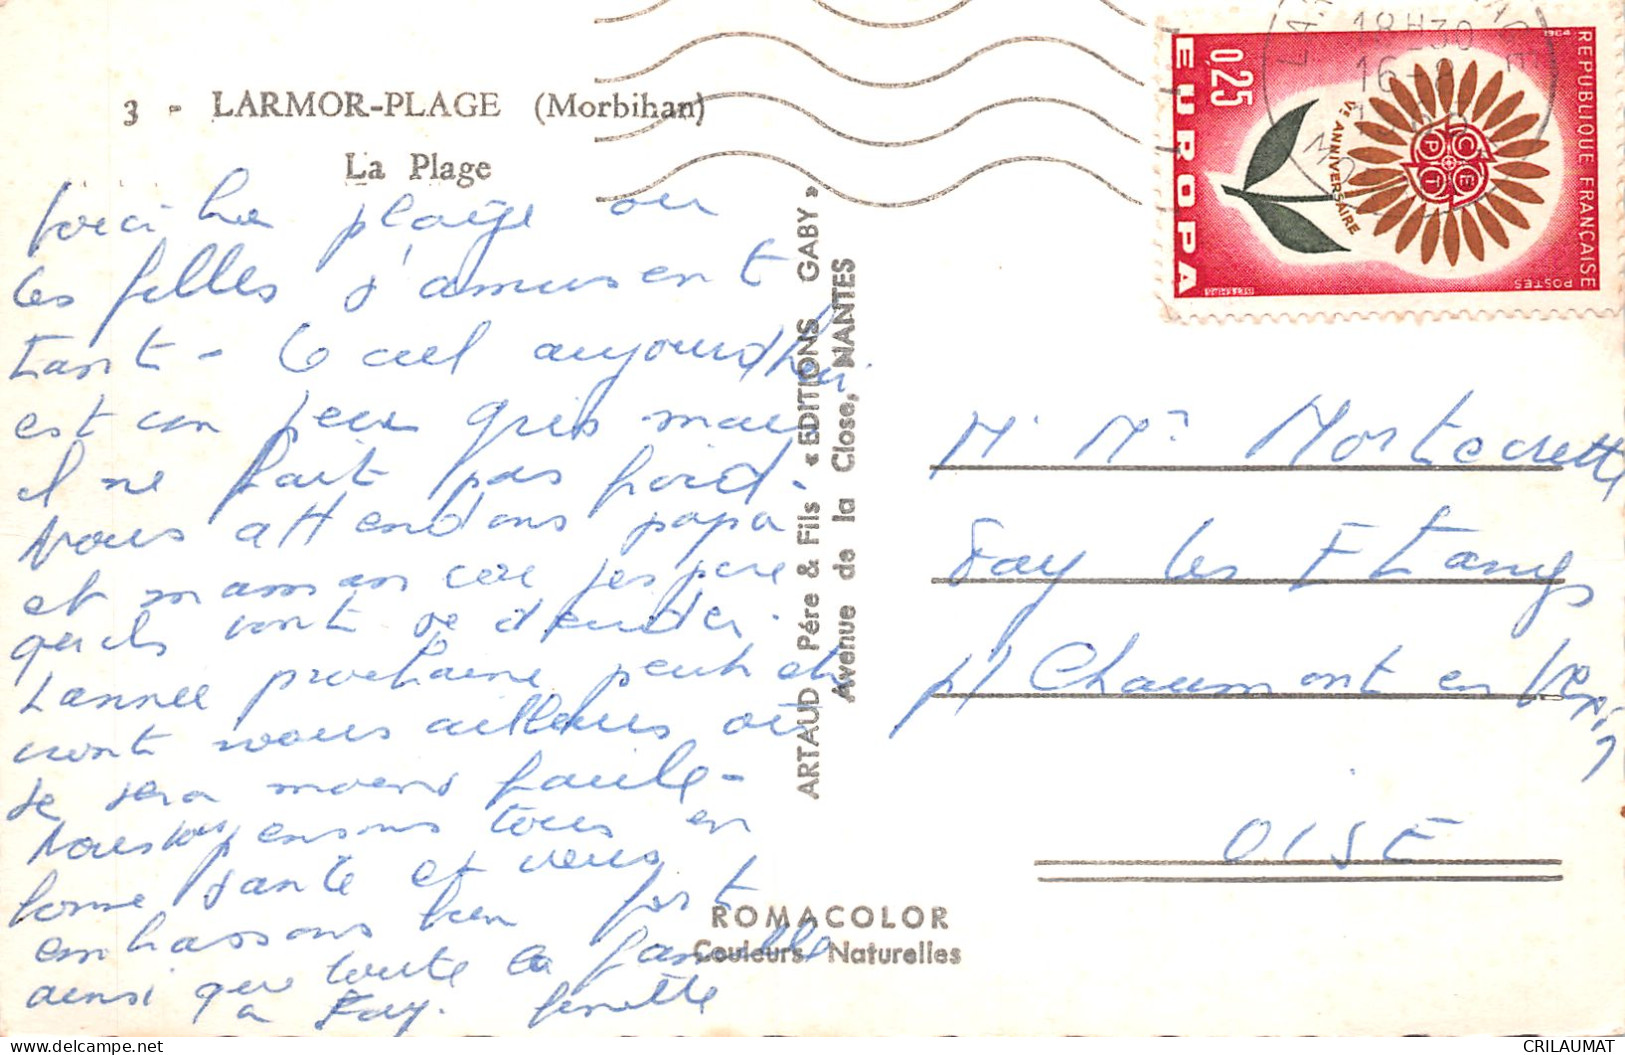 3 - LARMOR-PLAGE (Morbihan)
La Plage
Voici la plage ou
les filles s'amusent
tant - le ciel aujourd'hui
est un peu gris mais
il ne fait pas froid -
Nous attendons papa
et maman
qu'ils vont se decider.
L'année prochaine peut etre
iront nous ailleurs où
se sera moins foule -
Nous vous pensons tous en
bonne santé et vous
embrassons bien fort
ainsi que toute la famille
a Fay. Ginette
ARTAUD Père & Fils « EDITIONS GABY »
Avenue de la Close, NANTES
ROMACOLOR
Couleurs Naturelles
REPUBLIQUE FRANÇAISE
POSTES
1964
0,25
EUROPA
Ve ANNIVERSAIRE
CEPT
18H30
16-8
M. Me Mortecrette
Fay les Etangs
p/ Chaumont en Vexin
OISE
CRILAUMAT